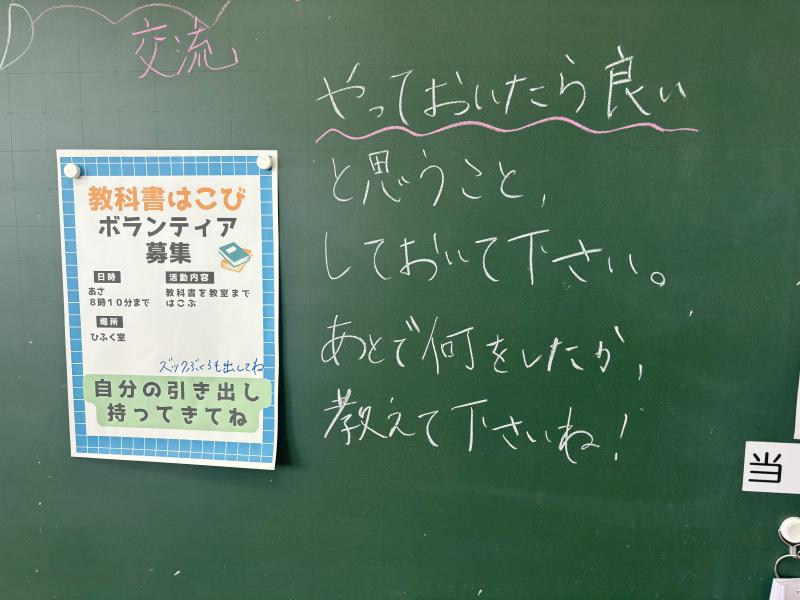 交流
やっておいたら良い
と思うこと、
しておいて下さい。
あとで何をしたか、
教えて下さいね!
教科書はこび
ボランティア
募集
日時
あさ
8時10分まで
活動内容
教科書を教室まで
はこぶ
場所
ひふく室
ズックぶくろも出してね
自分の引き出し
持ってきてね
当